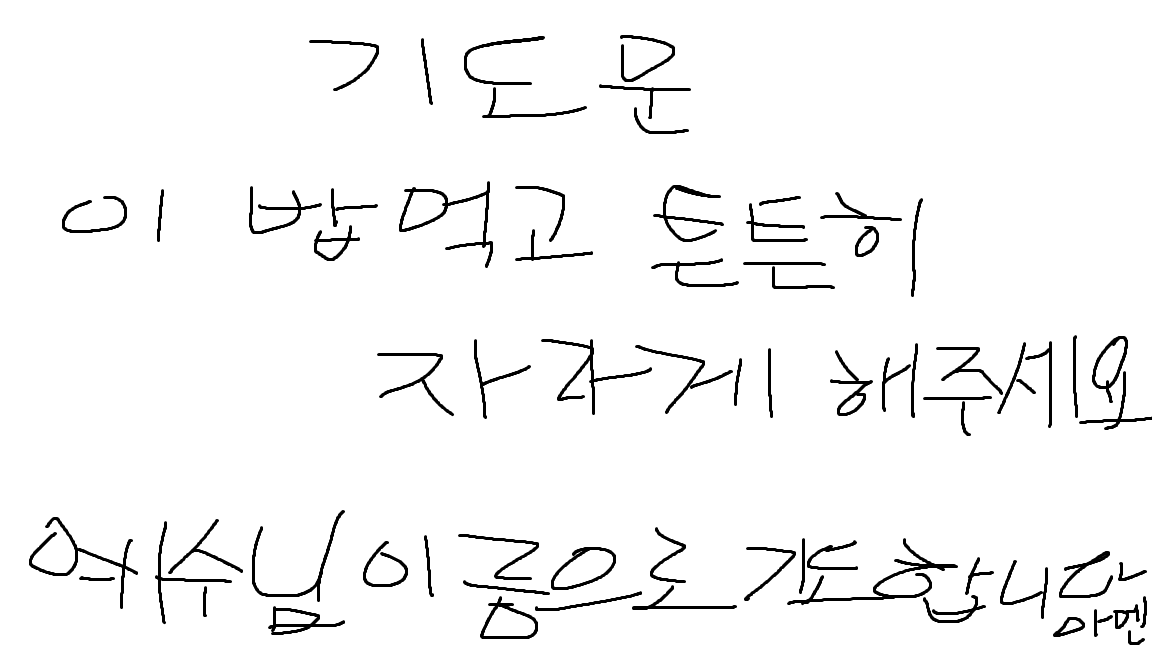 기도문
이 밥먹고 튼튼히
자라게 해주세요
예수님 이름으로 기도합니다
아멘